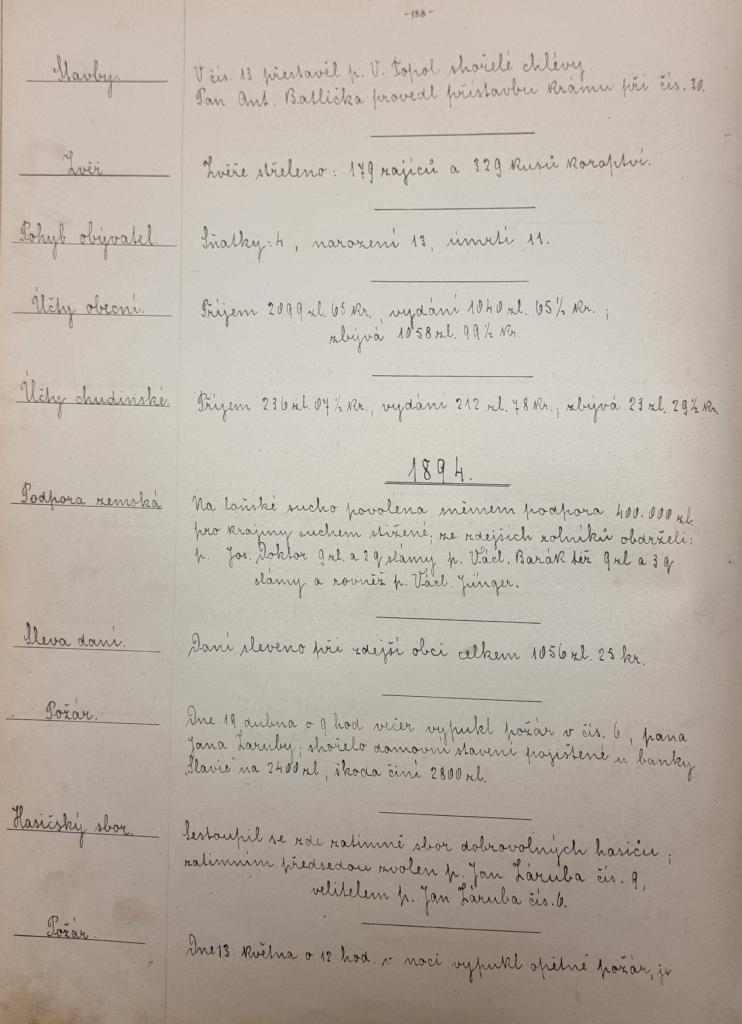 -188-
Stavby.
V čís. 13 přestavěl p. V. Topol shořelé chlévy.
Pan Ant. Batlička provedl přístavbu krámu při čís. 30.
Zvěř
Zvěře střeleno: 179 zajíců a 329 kusů koroptví.
Pohyb obývatel.
Sňatky: 4, narození 13, úmrtí 11.
Účty obecní.
Příjem 2099 zl. 65 kr., vydání 1040 zl. 65½ kr.;
zbývá 1058 zl. 99½ kr.
Účty chudinské.
Příjem 236 zl. 07½ kr., vydání 212 zl. 78 kr.; zbývá 23 zl. 29½ kr.
1894.
Podpora zemská
Na loňské sucho povolena sněmem podpora 400.000 zl.
pro krajiny suchem stižené; ze zdejších rolníků obdrželi:
p. Jos. Doktor 9 zl. a 3 q slámy p. Václ. Barák též 9 zl a 3 q
slámy a rovněž p. Václ. Jünger.
Sleva daní.
Daní sleveno při zdejší obci celkem 1056 zl. 25 kr.
Požár.
Dne 19 dubna o 9 hod večer vypukl požár v čís. 6, pana
Jana Záruby; shořelo domovní stavení pojištěné u banky
"Slavie" na 2400 zl, škoda činí 2800 zl.
Hasičský sbor.
Sestoupil se zde zatímně sbor dobrovolných hasičů;
zatimním předsedou zvolen p. Jan Záruba čís. 9,
velitelem p. Jan Záruba čís. 6.
Požár.
Dne 13. května o 12 hod. v noci vypukl opětně požár, je